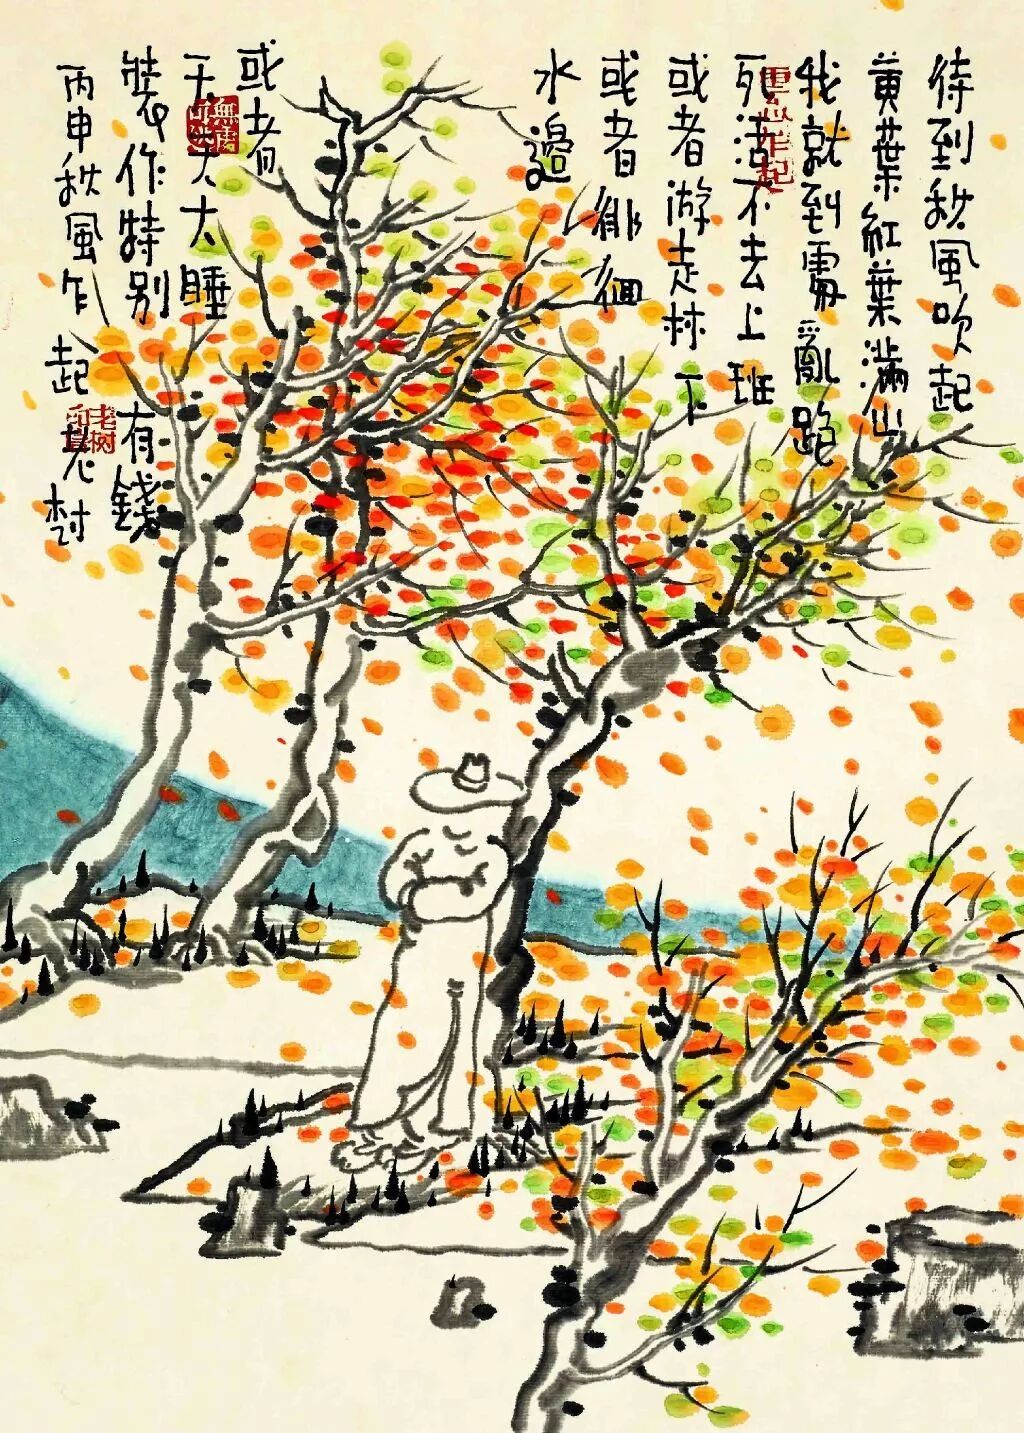 待到秋風吹起
黄葉紅葉滿山
我就到處亂跑
死活不去上班
或者游走林下
或者徘徊
水邊
或者
天天大睡
裝作特别有錢
丙申秋風乍起 老树
老树